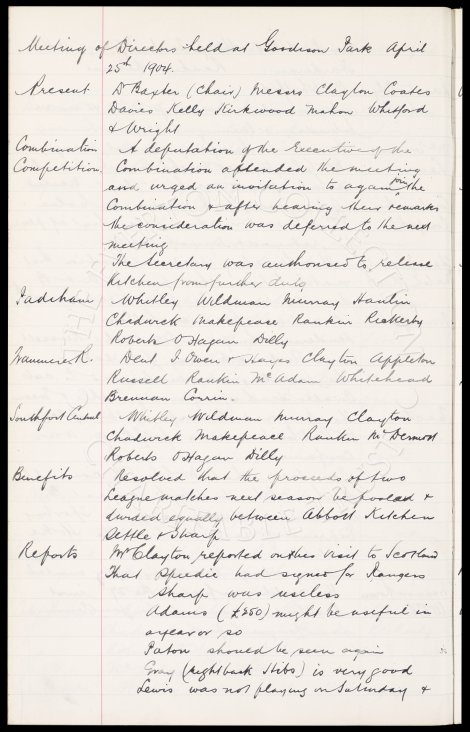 Meeting of Directors held at Goodison Park April
25th 1904.
Present Dr Baxter (Chair) Messrs Clayton Coates
Davies Kelly Kirkwood Mahon Whitford
& Wright
Combination A deputation of the Executive of the
Competition. Combination attended the meeting
and urged an invitation to again join the
Combination & after hearing their remarks
the consideration was deferred to the next
meeting
The Secretary was authorised to release
Kitchen from further duty
Padiham Whitley Wildman Murray Hanlin
Chadwick Makepeace Rankin Rickerby
Roberts O'Hagan Dilly
Tranmere R. Dent J. Owen & Clayton Appleton
Russell Rankin McAdam Whitehead
Brennan Corrin.
Southport Central Whitley Wildman Murray Clayton
Chadwick Makepeace Rankin McDermott
Roberts O'Hagan Dilly
Benefits Resolved that the proceeds of two
League matches next season be pooled &
divided equally between Abbott Kitchen
Settle & Sharp
Reports Mr Clayton reported on his visit to Scotland
That Speedie had signed for Rangers
Sharp was useless
Adams (£250) might be useful in
a year or so
Paton should be seen again
Gray (right back Hibs) is very good
Lewis was not playing on Saturday &